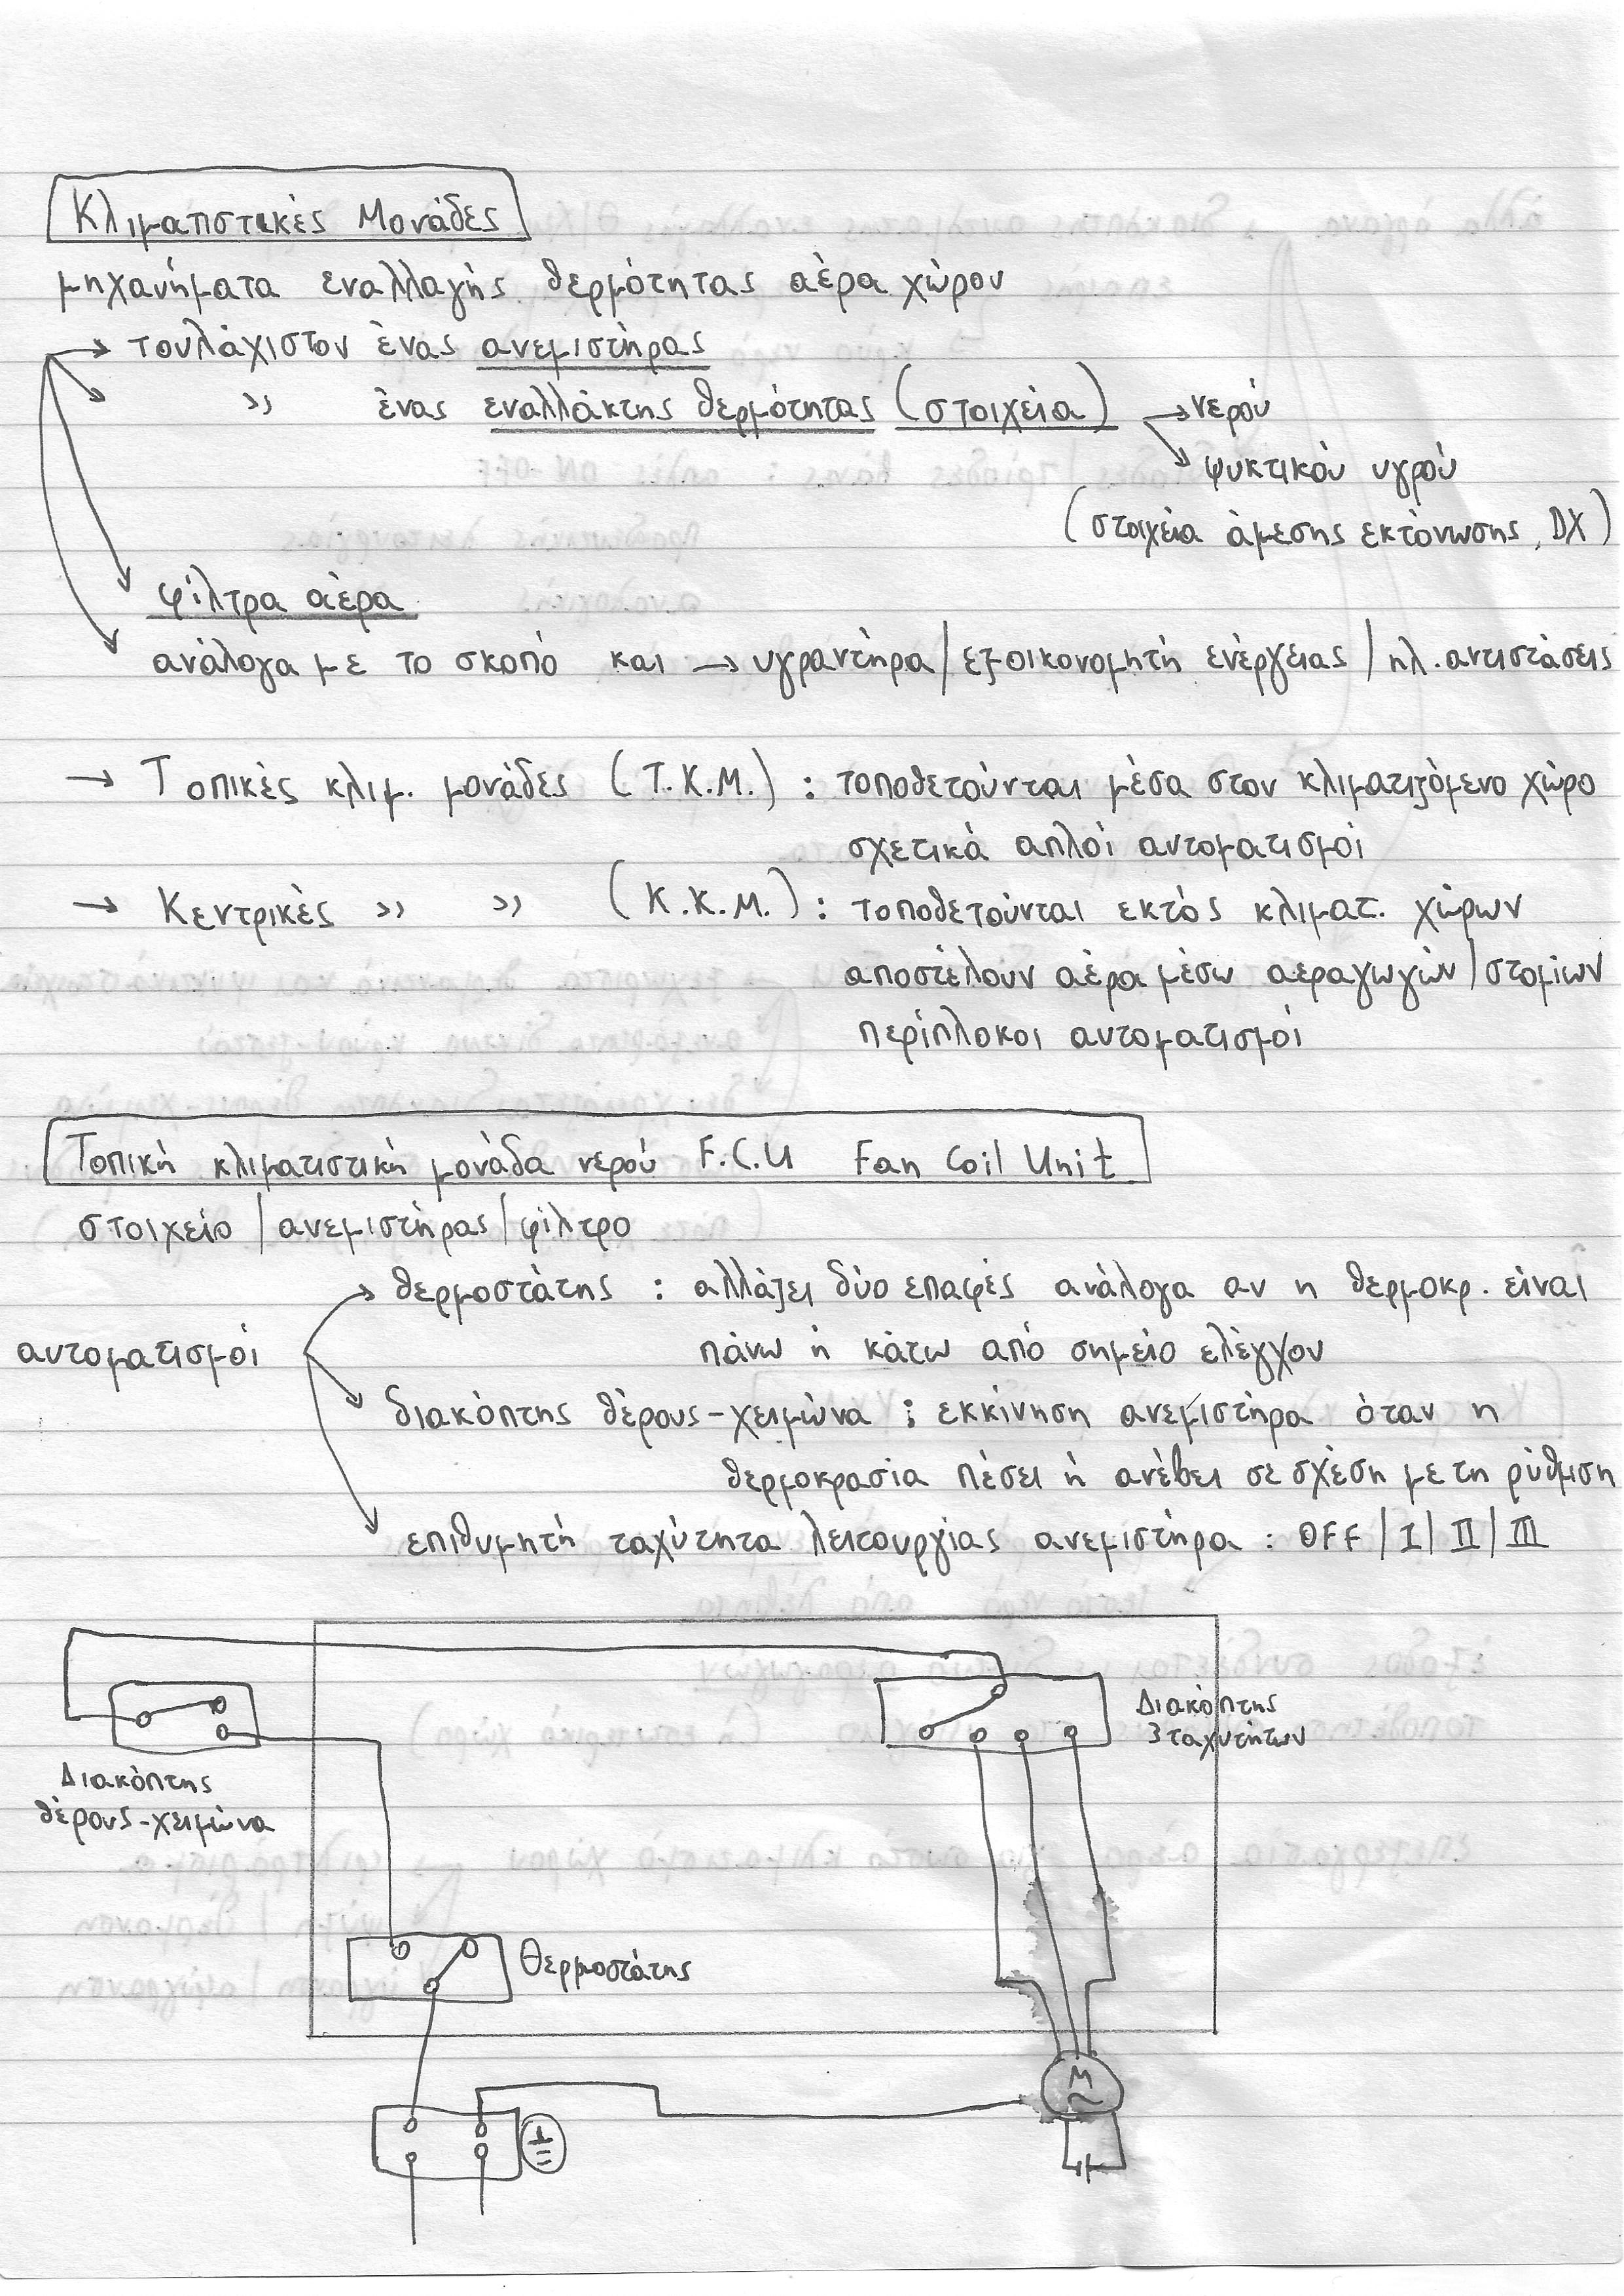 Κλιματιστικές Μονάδες
μηχανήματα εναλλαγής θερμότητας αέρα χώρου
→ τουλάχιστον ένας ανεμιστήρας
» ένας εναλλάκτης θερμότητας (στοιχεία) → νερού
ψυκτικού υγρού
(στοιχεία άμεσης εκτόνωσης, DX)
φίλτρα αέρα
ανάλογα με το σκοπό και → υγραντήρα / εξοικονομητή ενέργειας / ηλ. αντιστάσεις
→ Τοπικές κλιμ. μονάδες (Τ.Κ.Μ.) : τοποθετούνται μέσα στον κλιματιζόμενο χώρο
σχετικά απλοί αυτοματισμοί
→ Κεντρικές » » (Κ.Κ.Μ.) : τοποθετούνται εκτός κλιματ. χώρων
αποστέλουν αέρα μέσω αεραγωγών / στομίων
περίπλοκοι αυτοματισμοί
Τοπική κλιματιστική μονάδα νερού F.C.U Fan Coil Unit
στοιχείο / ανεμιστήρας / φίλτρο
θερμοστάτης : αλλάζει δύο επαφές ανάλογα αν η θερμοκρ. είναι
πάνω ή κάτω από σημείο ελέγχου
αυτοματισμοί
διακόπτης θέρους-χειμώνα : εκκίνηση ανεμιστήρα όταν η
θερμοκρασία πέσει ή ανέβει σε σχέση με τη ρύθμιση
επιθυμητή ταχύτητα λειτουργίας ανεμιστήρα : OFF / I / II / III
Διακόπτης
3 ταχυτήτων
Διακόπτης
θέρους-χειμώνα
Θερμοστάτης
M
~